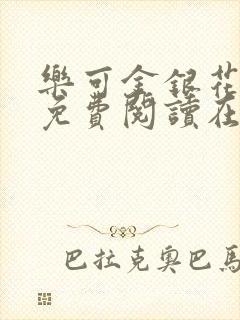 樂可金銀花
免費閱讀在
巴拉克奧巴馬